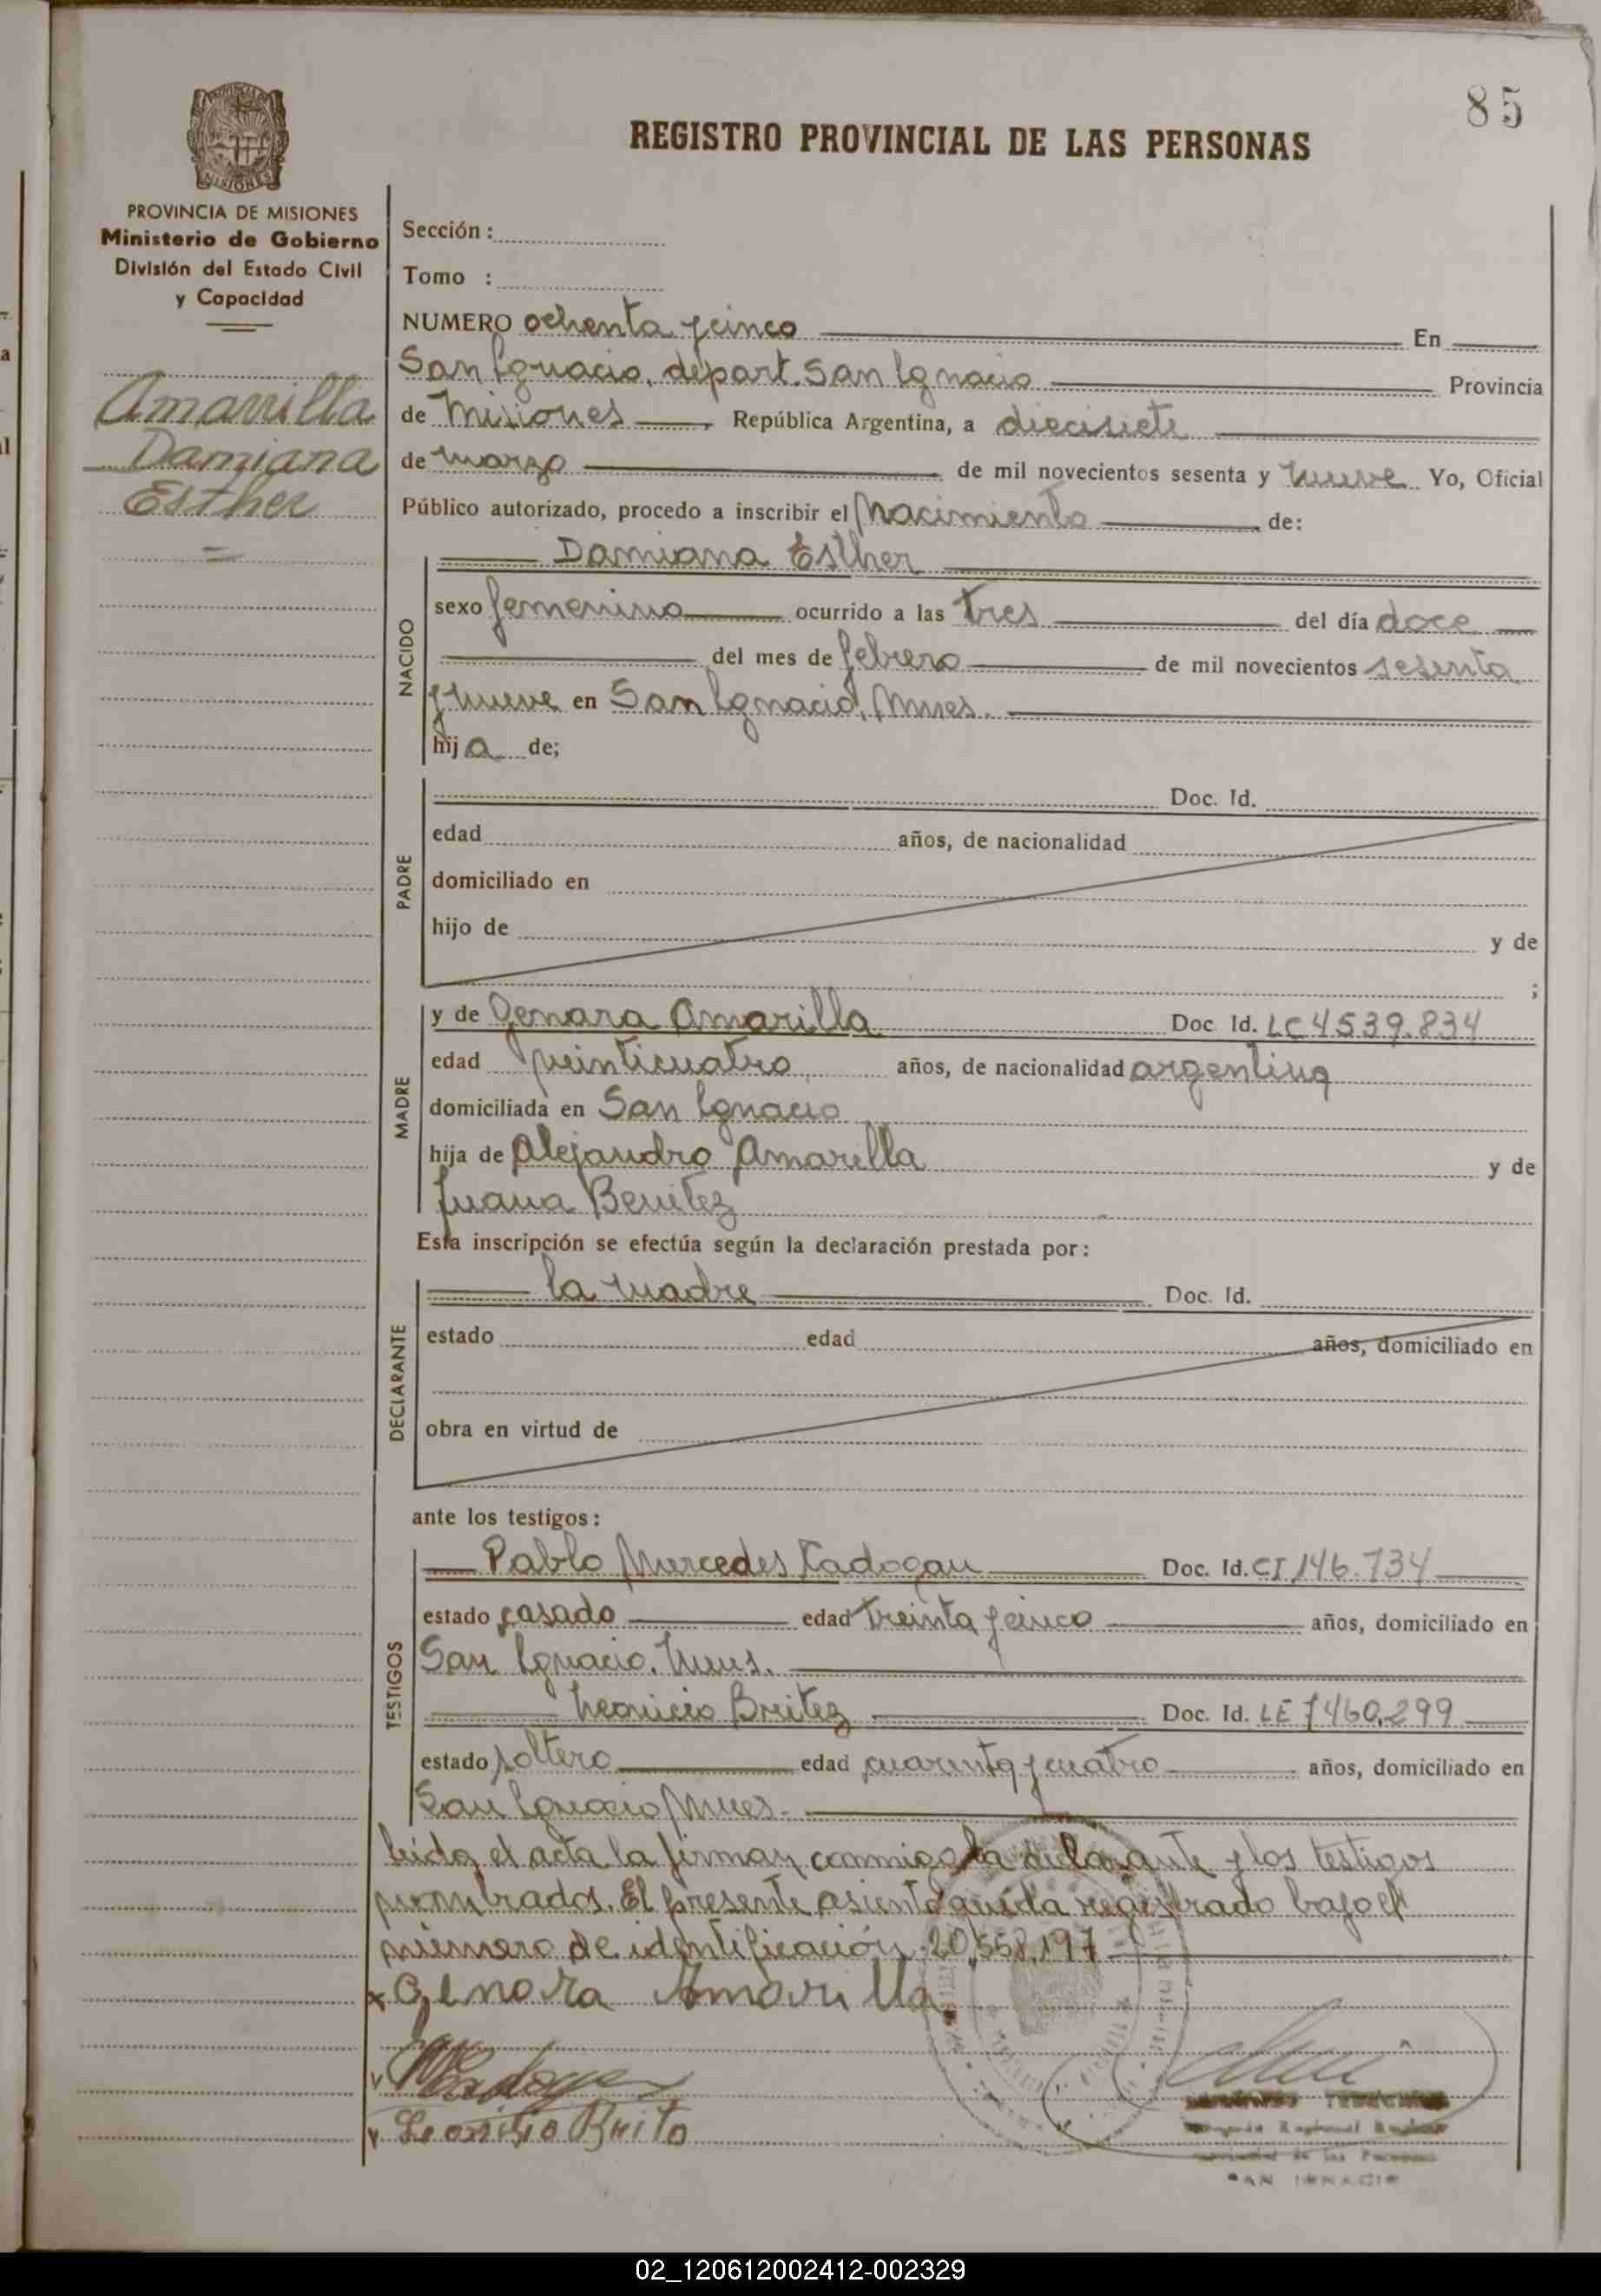 85
REGISTRO PROVINCIAL DE LAS PERSONAS
PROVINCIA DE MISIONES
Ministerio de Gobierno
División del Estado Civil
y Capacidad
Amarilla
Damiana
Esther
Sección :
Tomo :
NUMERO ochenta y cinco En
San Ignacio, depart. San Ignacio Provincia
de Misiones , República Argentina, a diecisiete
de marzo de mil novecientos sesenta y nueve Yo, Oficial
Público autorizado, procedo a inscribir el Nacimiento de:
NACIDO
Damiana Esther
sexo femenino ocurrido a las tres del día doce
del mes de febrero de mil novecientos sesenta
y nueve en San Ignacio, Mnes.
hija de;
PADRE
Doc. Id.
edad años, de nacionalidad
domiciliado en
hijo de y de
;
MADRE
y de Genara Amarilla Doc. Id. LC 4539.834
edad veinticuatro años, de nacionalidad argentina
domiciliada en San Ignacio
hija de Alejandro Amarilla y de
Juana Benitez
Esta inscripción se efectúa según la declaración prestada por:
DECLARANTE
la madre Doc. Id.
estado edad años, domiciliado en
obra en virtud de
ante los testigos:
TESTIGOS
Pablo Mercedes Kadogan Doc. Id. CI 146.734
estado casado edad treinta y cinco años, domiciliado en
San Ignacio, Mnes.
Britez Doc. Id. LE 7460.299
estado soltero edad cuarenta y cuatro años, domiciliado en
San Ignacio Mnes.
leida el acta la firman conmigo la declarante y los testigos
nombrados. El presente asiento queda registrado bajo el
número de identificación 20.558.197
x Genara Amarilla
SAN IGNACIO
02_120612002412-002329